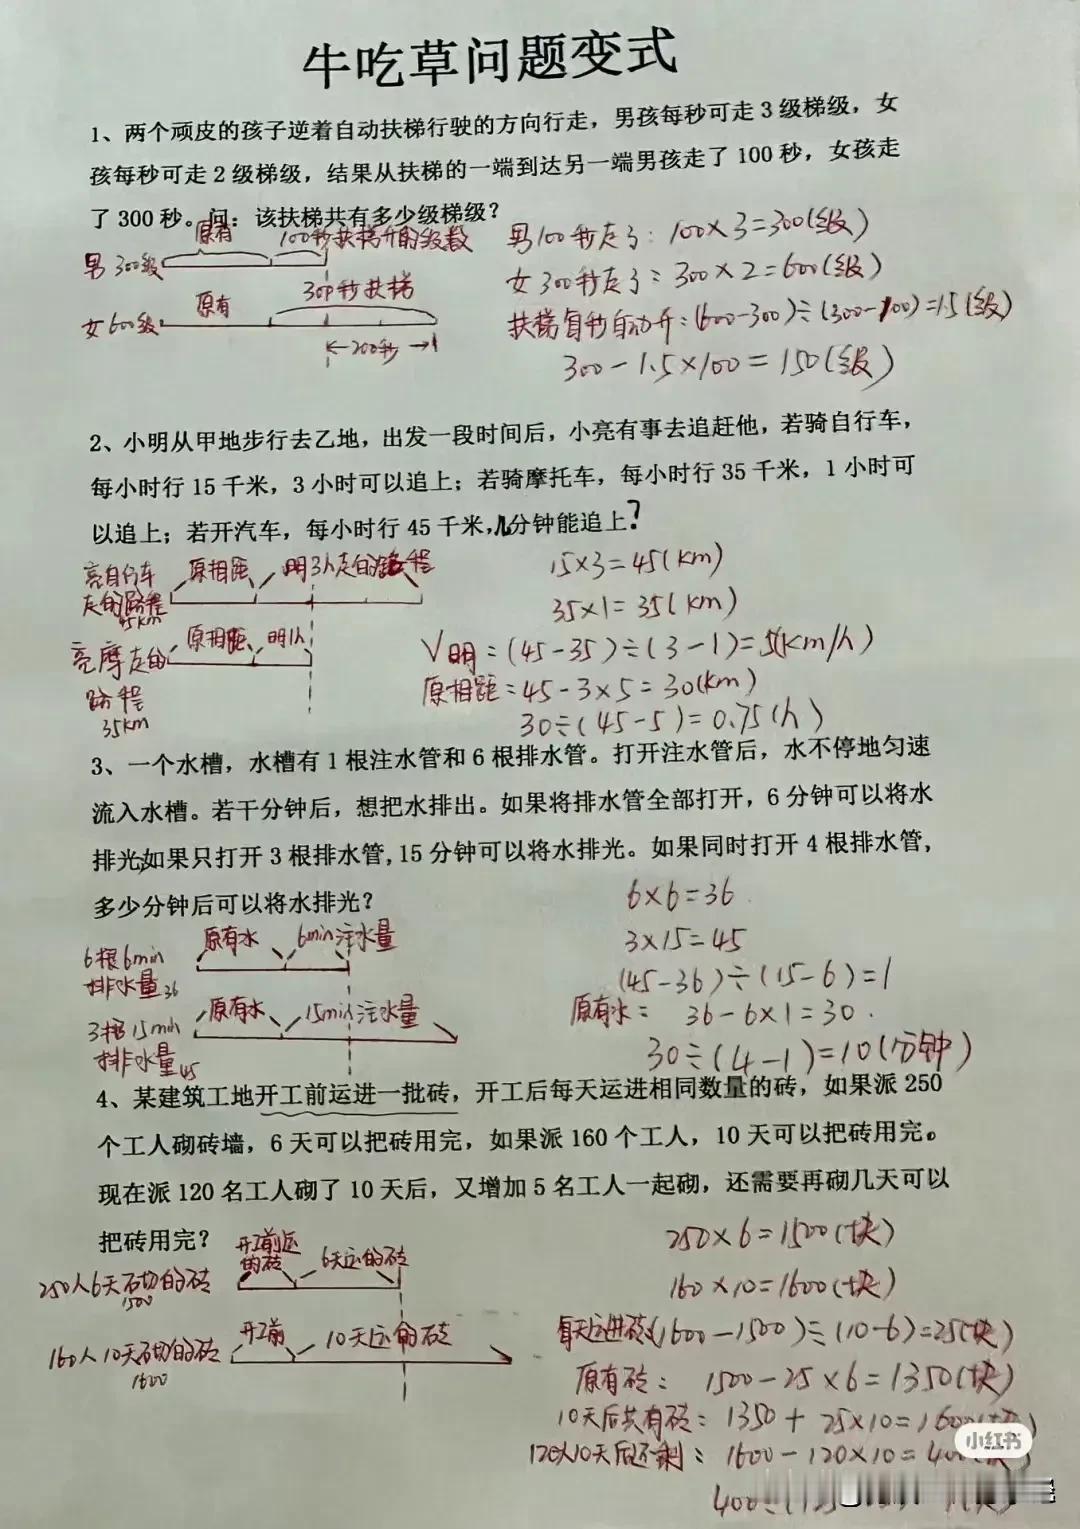 牛吃草问题变式
1、两个顽皮的孩子逆着自动扶梯行驶的方向行走，男孩每秒可走3级梯级，女
孩每秒可走2级梯级，结果从扶梯的一端到达另一端男孩走了100秒，女孩走
了300秒。问：该扶梯共有多少级梯级？
原有 100秒扶梯开的级数
男300级
300秒扶梯
女600级 原有
200秒
男100秒走了：100×3=300(级)
女300秒走了：300×2=600(级)
扶梯每秒自动开：(600-300)÷(300-100)=1.5(级)
300-1.5×100=150(级)
2、小明从甲地步行去乙地，出发一段时间后，小亮有事去追赶他，若骑自行车，
每小时行15千米，3小时可以追上；若骑摩托车，每小时行35千米，1小时可
以追上；若开汽车，每小时行45千米，几分钟能追上？
亮自行车 原相距 明3h走的路程
走的路程
45km
亮摩走的 原相距 明1h
路程
35km
15×3=45(km)
35×1=35(km)
V明=(45-35)÷(3-1)=5(km/h)
原相距=45-3×5=30(km)
30÷(45-5)=0.75(h)
3、一个水槽，水槽有1根注水管和6根排水管。打开注水管后，水不停地匀速
流入水槽。若干分钟后，想把水排出。如果将排水管全部打开，6分钟可以将水
排光,如果只打开3根排水管,15分钟可以将水排光。如果同时打开4根排水管,
多少分钟后可以将水排光？
6根6min 原有水 6min注水量
排水量36
3根15min 原有水 15min注水量
排水量45
6×6=36
3×15=45
(45-36)÷(15-6)=1
原有水= 36-6×1=30
30÷(4-1)=10(分钟)
4、某建筑工地开工前运进一批砖，开工后每天运进相同数量的砖，如果派250
个工人砌砖墙，6天可以把砖用完，如果派160个工人，10天可以把砖用完。
现在派120名工人砌了10天后，又增加5名工人一起砌，还需要再砌几天可以
把砖用完？
开工前运的砖 6天运的砖
250人6天砌的砖
1500
开工前 10天运的砖
160人10天砌的砖
1600
250×6=1500(块)
160×10=1600(块)
每天运进砖(1600-1500)÷(10-6)=25(块)
原有砖：1500-25×6=1350(块)
10天后共有砖：1350+25×10=1600(块)
120人10天后还剩：1600-120×10=400(块)
400÷(
小红书